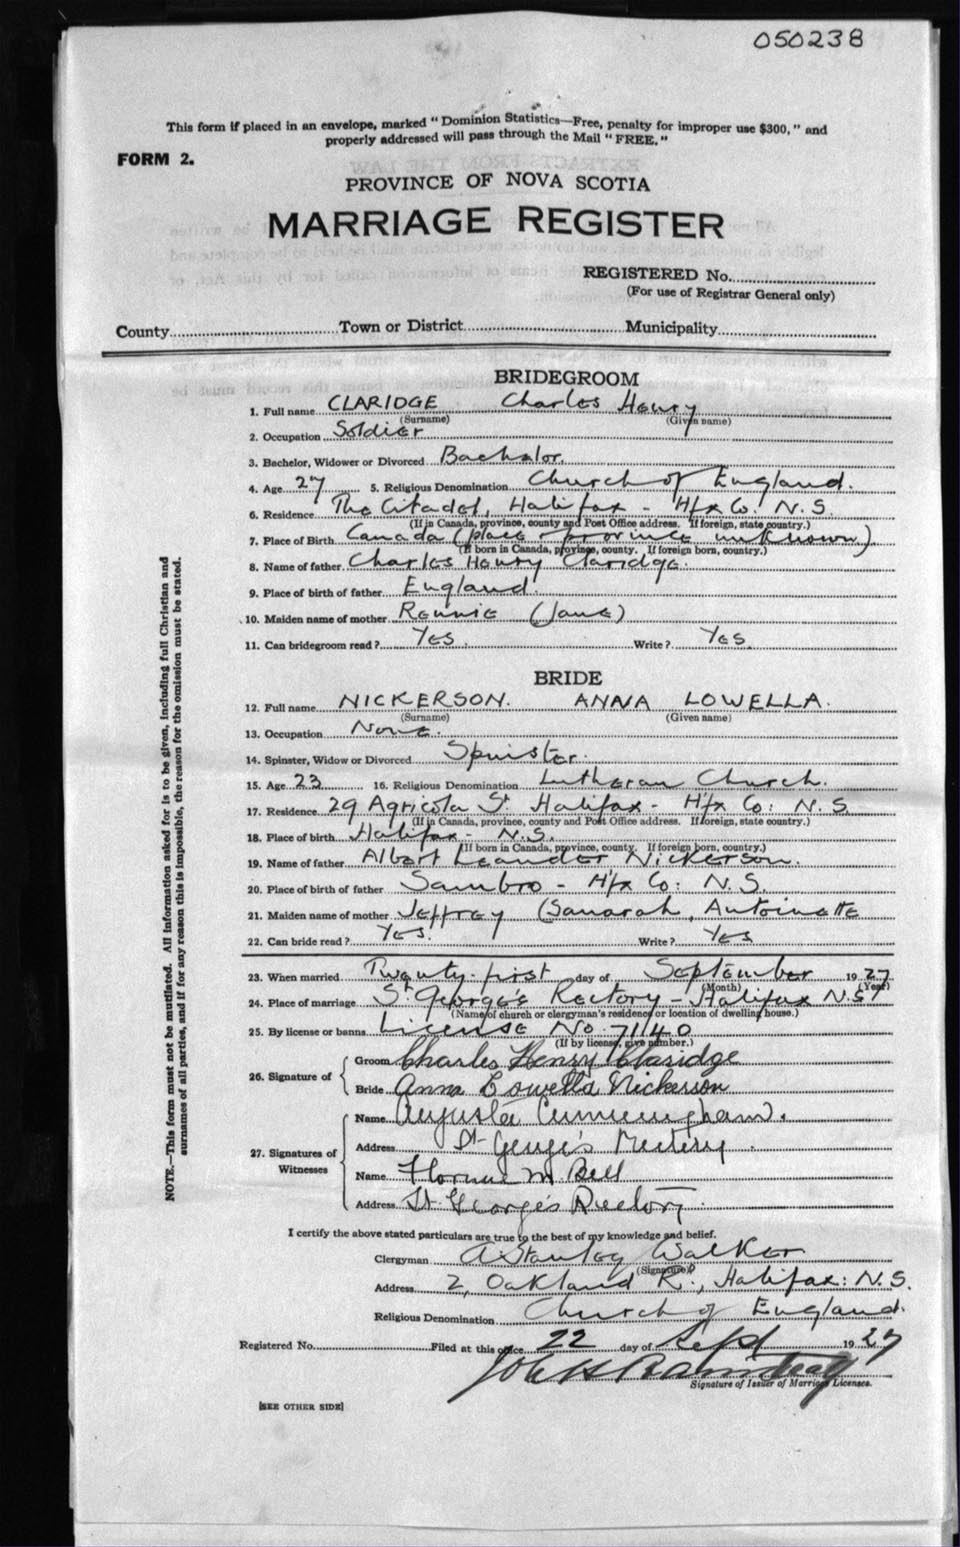 050238
This form if placed in an envelope, marked "Dominion Statistics—Free, penalty for improper use $300," and
properly addressed will pass through the Mail "FREE."
FORM 2.
PROVINCE OF NOVA SCOTIA
MARRIAGE REGISTER
REGISTERED No.
(For use of Registrar General only)
County Town or District Municipality
BRIDEGROOM
1. Full name CLARIDGE Charles Henry
(Surname) (Given name)
2. Occupation Soldier
3. Bachelor, Widower or Divorced Bachelor.
4. Age 27 5. Religious Denomination Church of England.
6. Residence The Citadel, Halifax - H'fx Co. N.S.
(If in Canada, province, county and Post Office address. If foreign, state country.)
7. Place of Birth Canada (place & province unknown)
(If born in Canada, province, county. If foreign born, country.)
8. Name of father Charles Henry Claridge.
9. Place of birth of father England.
10. Maiden name of mother Rennie (Jane)
11. Can bridegroom read? Yes. Write? Yes.
BRIDE
12. Full name NICKERSON. ANNA LOWELLA.
(Surname) (Given name)
13. Occupation None.
14. Spinster, Widow or Divorced Spinster.
15. Age 23 16. Religious Denomination Lutheran Church.
17. Residence 29 Agricola St Halifax - H'fx Co: N.S.
(If in Canada, province, county and Post Office address. If foreign, state country.)
18. Place of birth Halifax - N.S.
(If born in Canada, province, county. If foreign born, country.)
19. Name of father Albert Leander Nickerson.
20. Place of birth of father Sambro - H'fx Co: N.S.
21. Maiden name of mother Jeffrey (Sanarah, Antoinette
22. Can bride read? Yes. Write? Yes
23. When married Twenty-first day of September 1927
(Month) (Year)
24. Place of marriage St George's Rectory - Halifax N.S.
(Name of church or clergyman's residence or location of dwelling house.)
25. By license or banns License No. 7140
(If by license, give number.)
26. Signature of
Groom Charles Henry Claridge
Bride Anna Lowella Nickerson
27. Signatures of Witnesses
Name Augusta Cunningham.
Address St. George's Rectory.
Name Florence M. Bell
Address St. George's Rectory.
I certify the above stated particulars are true to the best of my knowledge and belief.
Clergyman A Stanley Walker
(Signature)
Address 2, Oakland R., Halifax: N.S.
Religious Denomination Church of England.
Registered No. Filed at this office 22 day of Sept 1927
Signature of Issuer of Marriage Licenses.
[SEE OTHER SIDE]
NOTE.—This form must not be mutilated. All information asked for is to be given, including full Christian and
surnames of all parties, and if for any reason this is impossible, the reason for the omission must be stated.